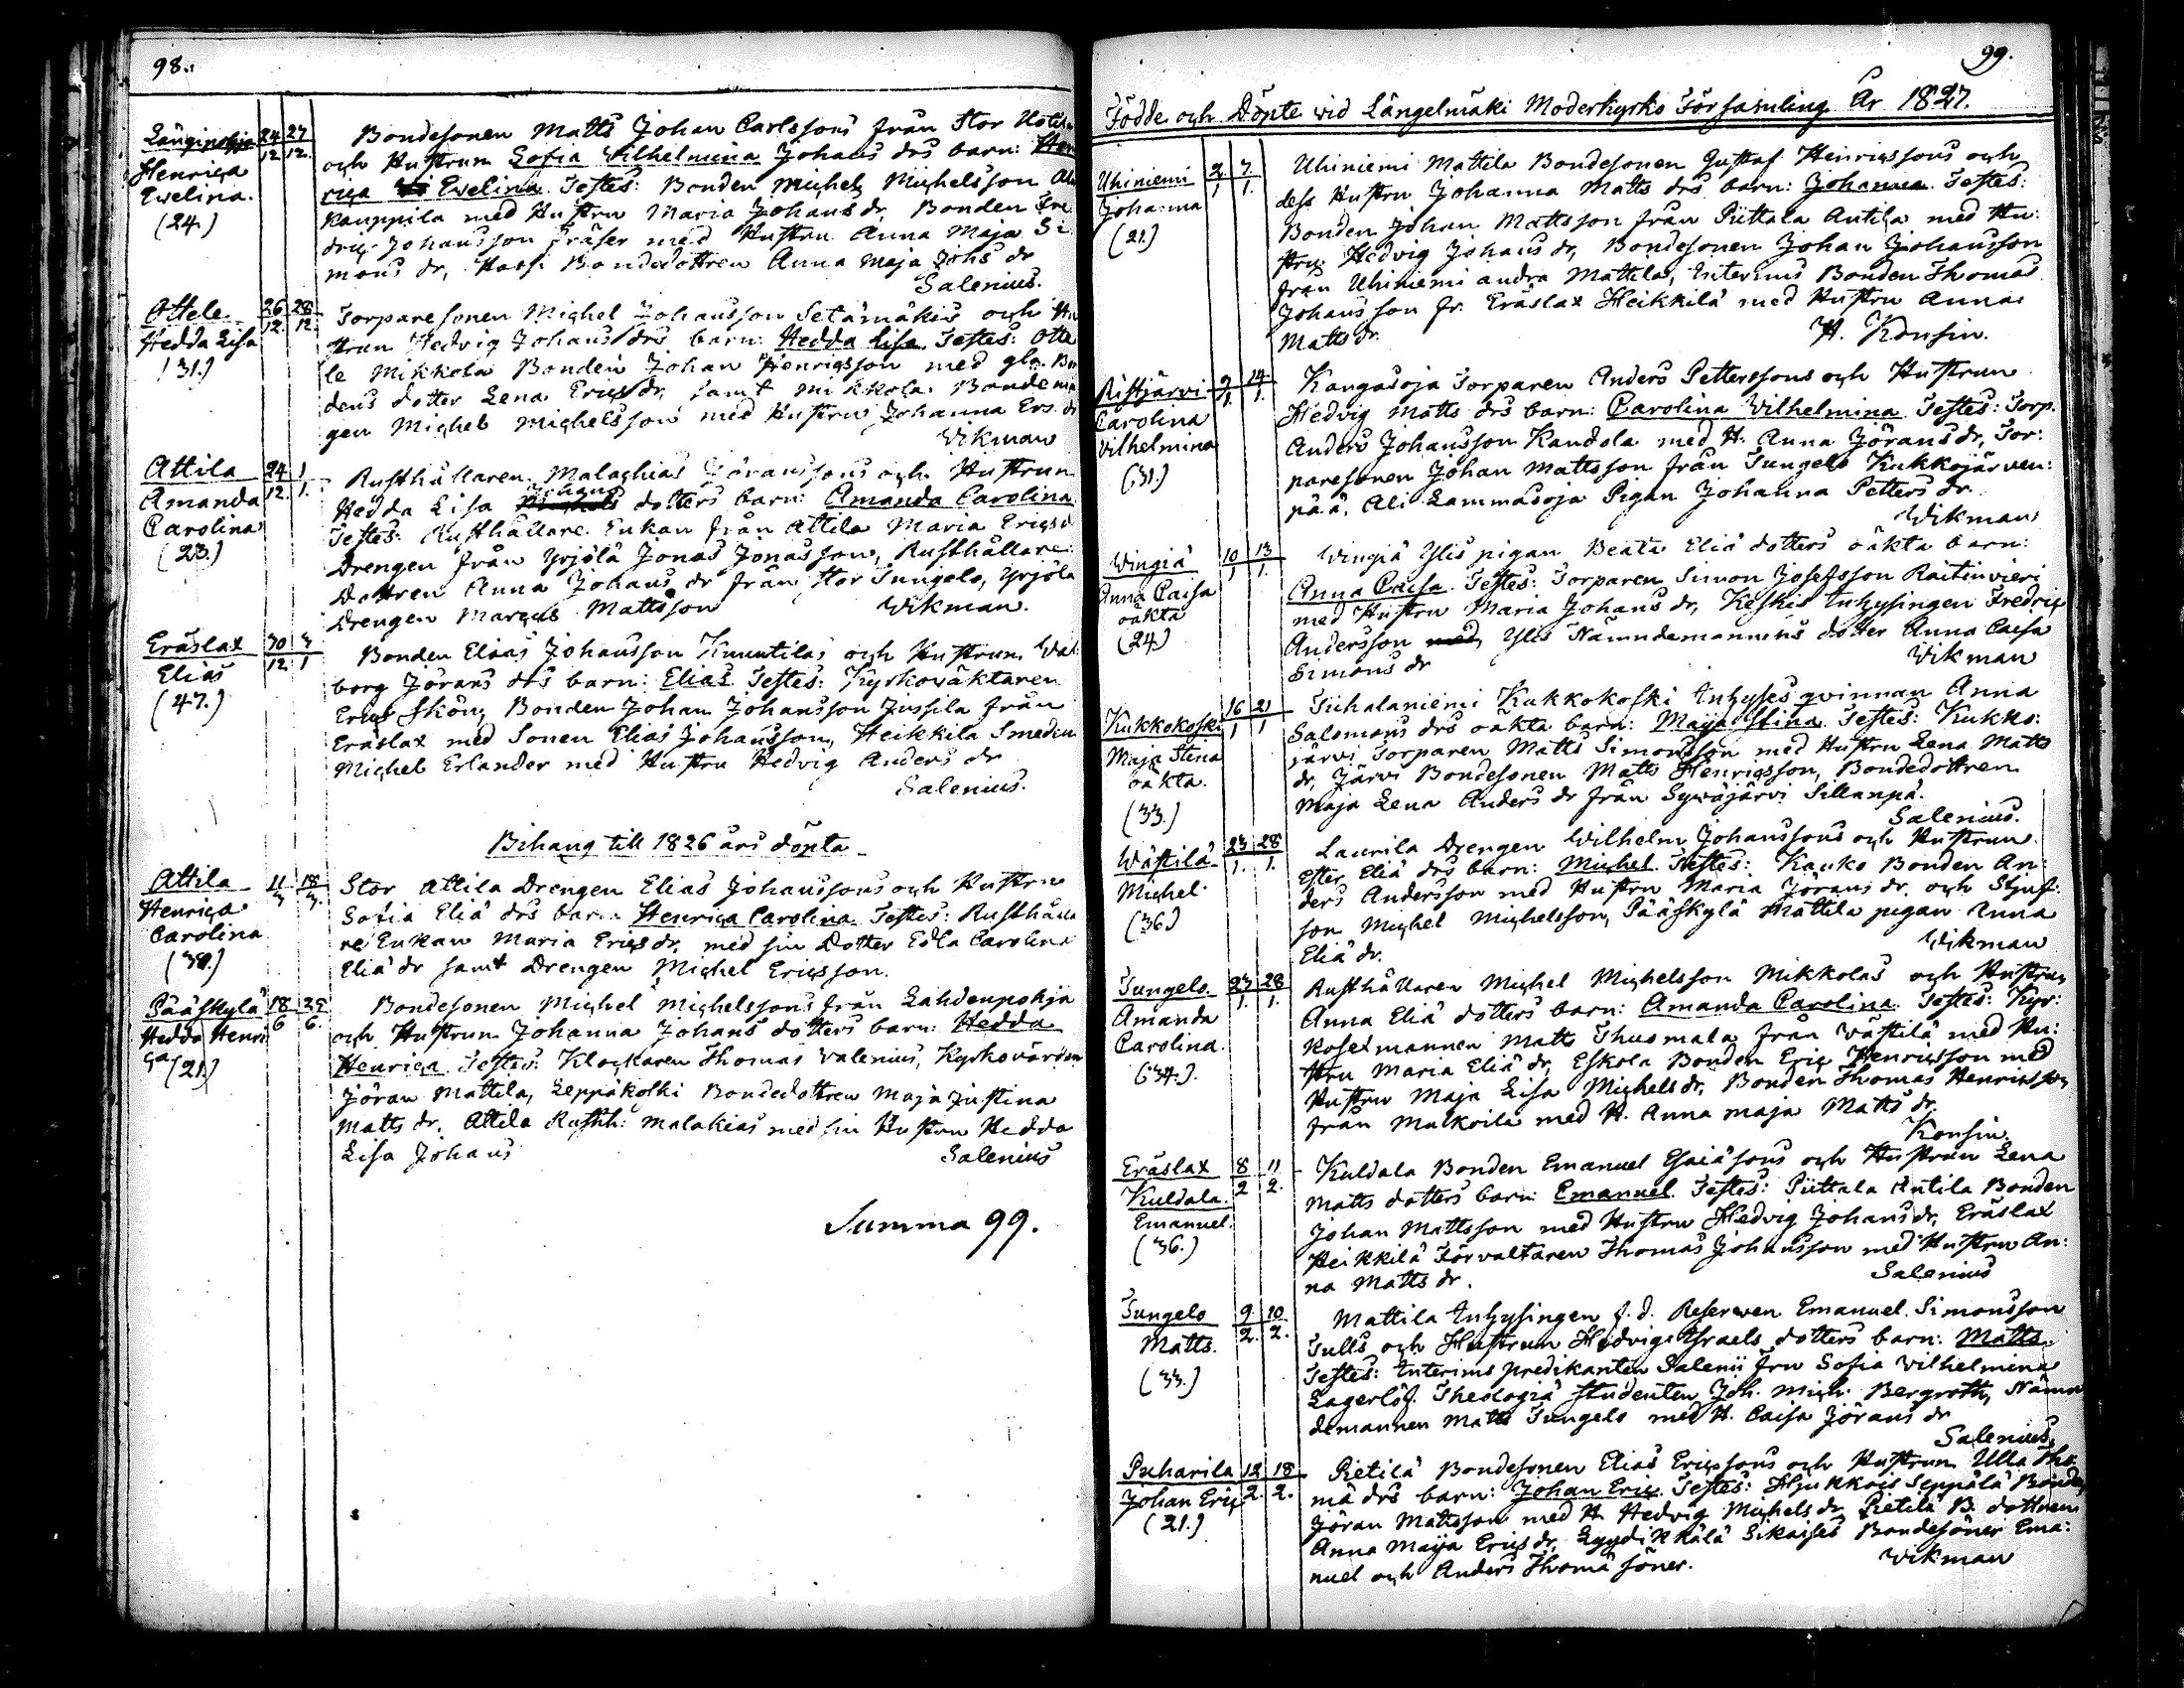 98.
Henrica
Ewelina.
(24)
24 27
12. 12.
Bondesonen Matts Johan Carlssons från Stor
och Hustrun Sofia Vilhelmina Johans drs barn: Hen
rica Ewelina. Testes: Bonden Michel Michelsson
Kauppila med Hustru Maria Johans dr, Bonden Fre
dric Johansson Fräser med Hustru Anna Maja Si
mons dr, Bondedottren Anna Maja Johs dr
Salenius.
Attele
Hedda Lisa
(31.)
26 28
12. 12.
Torparesonen Michel Johansson Setämäkis och Hu
strun Hedvig Johans drs barn: Hedda Lisa. Testes: Atte
le Mikkola Bonden Johan Henricsson med gla. Bon
dens dotter Lena Erics dr, samt Mikkola Bonde må
gen Michel Michelsson med Hustru Johanna Ers. dr
Wikman
Attila
Amanda
Carolina
(23.)
24 1
12. 1.
Rusthållaren Malachias Jöranssons och Hustrun
Hedda Lisa Johans dotters barn: Amanda Carolina
Testes: Rusthållare Enkan från Attila Maria Erics d
Drengen från Yrjölä Jonas Jonasson, Rusthållare
Dottren Anna Johans dr från Stor Tungelo, Yrjöla
Drengen Marcus Mattsson Wikman.
Eräslax
Elias
(47.)
30 3
12. 1
Bonden Elias Johansson Knuutilas och Hustrun Wal
borg Jörans drs barn: Elias. Testes: Kyrkoväktaren
Eric Skön, Bonden Johan Johansson Jussila från
Eräslax med Sonen Elias Johansson, Heikkila Smeden
Michel Erlander med Hustru Hedvig Anders dr
Salenius.
Bihang till 1826 års döpta
Attila
Henrica
Carolina
11 18
3 3.
Stor Attila Drengen Elias Johanssons och Hustru
Sofia Eliä drs barn: Henrica Carolina. Testes: Rusthålla
re Enkan Maria Erics dr, med sin Dotter Edla Carolina
Eliä dr samt Drengen Michel Ericsson.
Pääskylä
Hedda Henri
ca (21.)
18 25
6 6.
Bondesonen Michel Michelssons från Lahdenpohja
och Hustrun Johanna Johans dotters barn: Hedda
Henrica. Testes: Klockaren Thomas Valenius, Kyrkovärden
Jöran Mattila, Leppäkoski Bondedottren Maja Justina
Matts dr. Attila Rusth: Malakias med sin Hustru Hedda
Lisa Johans Salenius
Summa 99.
99.
Födde och Döpte vid Längelmäki Moderkyrko Församling År 1827.
Uhiniemi
Johanna
(21.)
2 7.
1 1.
Uhiniemi Mattila Bondesonen Gustaf Henricssons och
dess Hustru Johanna Matts drs barn: Johanna. Testes:
Bonden Johan Mattsson från Piittala Antila med Hu:
stru Hedvig Johans dr, Bondesonen Johan Johansson
från Uhiniemi andra Mattila, Interims Bonden Thomas
Johansson fr. Eräslax Heikkilä med Hustru Anna
Matts dr. H. Konsin.
Ristjärvi
Carolina
Vilhelmina
(31.)
9 14
1. 1.
Kangasoja Torparen Anders Petterssons och Hustrun
Hedvig Matts drs barn: Carolina Wilhelmina. Testes: Torp.
Anders Johansson Kandola med H. Anna Jörans dr, Tor:
paresonen Johan Mattsson från Tungelo Kukkojärven:
pää, Ali Lammasoja Pigan Johanna Petters dr.
Wikman
Wingiä
Anna Caisa
oäkta
(24.)
10 13
1 1.
Wingiä Ylis pigan Beata Eliä dotters oäkta barn:
Anna Caisa. Testes: Torparen Simon Josefsson Raitinvieri
med Hustru Maria Johans dr, Keskis Inhysingen Fredric
Andersson med Ylis Nämndemannens dotter Anna Caisa
Simons dr Wikman
Kukkokoski
Maja Stina
oäkta.
(33.)
16 21
1 1
Tiihalaniemi Kukkokoski Inhyses qvinnan Anna
Salomons drs oäkta barn: Maja Stina. Testes: Kukko:
järvi Torparen Matts Simonsson med Hustru Lena Matts
dr, Järvi Bondesonen Matts Henricsson, Bondedottren
Maja Lena Anders dr från Sywäjärvi Sillanpä.
Salenius.
Wästilä
Michel
(36.)
23 28
1. 1.
Laurila Drengen Wilhelm Johanssons och Hustrun
Ester Eliä drs barn: Michel. Testes: Kauko Bonden An:
ders Andersson med Hustru Maria Jörans dr. och Stjuf:
son Michel Michelsson, Pääskylä Mattila pigan Anna
Eliä dr. Wikman
Tungelo
Amanda
Carolina.
(34.)
27 28
1. 1.
Rusthållaren Michel Michelsson Mikkolas och Hustrun
Anna Eliä dotters barn: Amanda Carolina. Testes: Kyr:
kosexmannen Matts Thuomala från Wästilä med Hu:
stru Maria Eliä dr, Eskola Bonden Eric Henricsson med
Hustru Maja Lisa Michels dr, Bonden Thomas Henricsson
från Mulkoila med H. Anna Maja Matts dr.
Konsin
Eräslax
Kuldala.
Emanuel.
(36.)
8 11
2 2.
Kuldala Bonden Emanuel Esaiæsons och Hustrun Lena
Matts dotters barn: Emanuel. Testes: Piittala Antila Bonden
Johan Mattsson med Hustru Hedvig Johans dr, Eräslax
Heikkilä Förvaltaren Thomas Johansson med Hustru An:
na Matts dr. Salenius
Tungelo
Matts.
(33.)
9 10
2. 2.
Mattila Inhysingen f.d. Reserven Emanuel Simonsson
Tulls och Hustrun Hedvig Israels dotters barn: Matts.
Testes: Interims predikanten Salenii Fru Sofia Vilhelmina
Lagerlöf. Theologiä Studenten Joh. Mich. Bergroth, Nämn
demannen Matts Tungelo med H. Caisa Jörans dr
Salenius,
Puharila
Johan Eric
(21.)
12 18
2. 2.
Pietilä Bondesonen Elias Ericssons och Hustrun Ulla Tho
mä drs barn: Johan Eric. Testes: Hjukkois Seppälä Bonden
Jöran Mattsson med H. Hedvig Michels dr, Pietilä B. dottren
Anna Maija Erics dr, Lyydikkälä Sikaises Bondesöner Ema:
nuel och Anders Thomä söner. Wikman